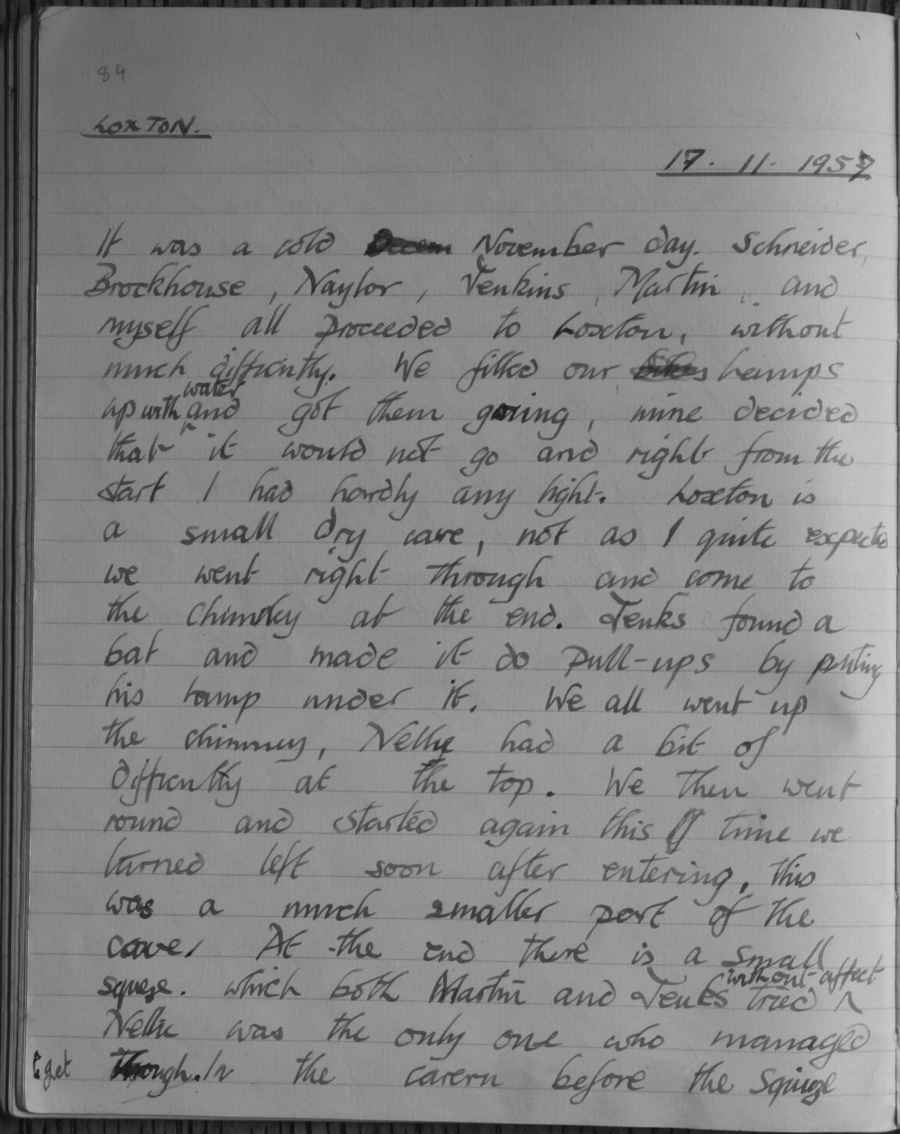 84
LOXTON.
17. 11. 1957
It was a cold November day. Schneider,
Brockhouse, Naylor, Jenkins, Martin, and
myself all proceeded to Loxton, without
much difficulty. We filled our Lamps
up with water and got them going, mine decided
that it would not go and right from the
start I had hardly any light. Loxton is
a small dry cave, not as I quite expected
we went right through and come to
the chimney at the end. Jenks found a
bat and made it do pull-ups by puting
his lamp under it. We all went up
the chimney, Nellie had a bit of
difficulty at the top. We then went
round and started again this time we
turned left soon after entering, this
was a much smaller part of the
cave, At the end there is a small
squeze. which both Martin and Jenks tried without affect
Nellie was the only one who managed
to get through. In the cavern before the squige